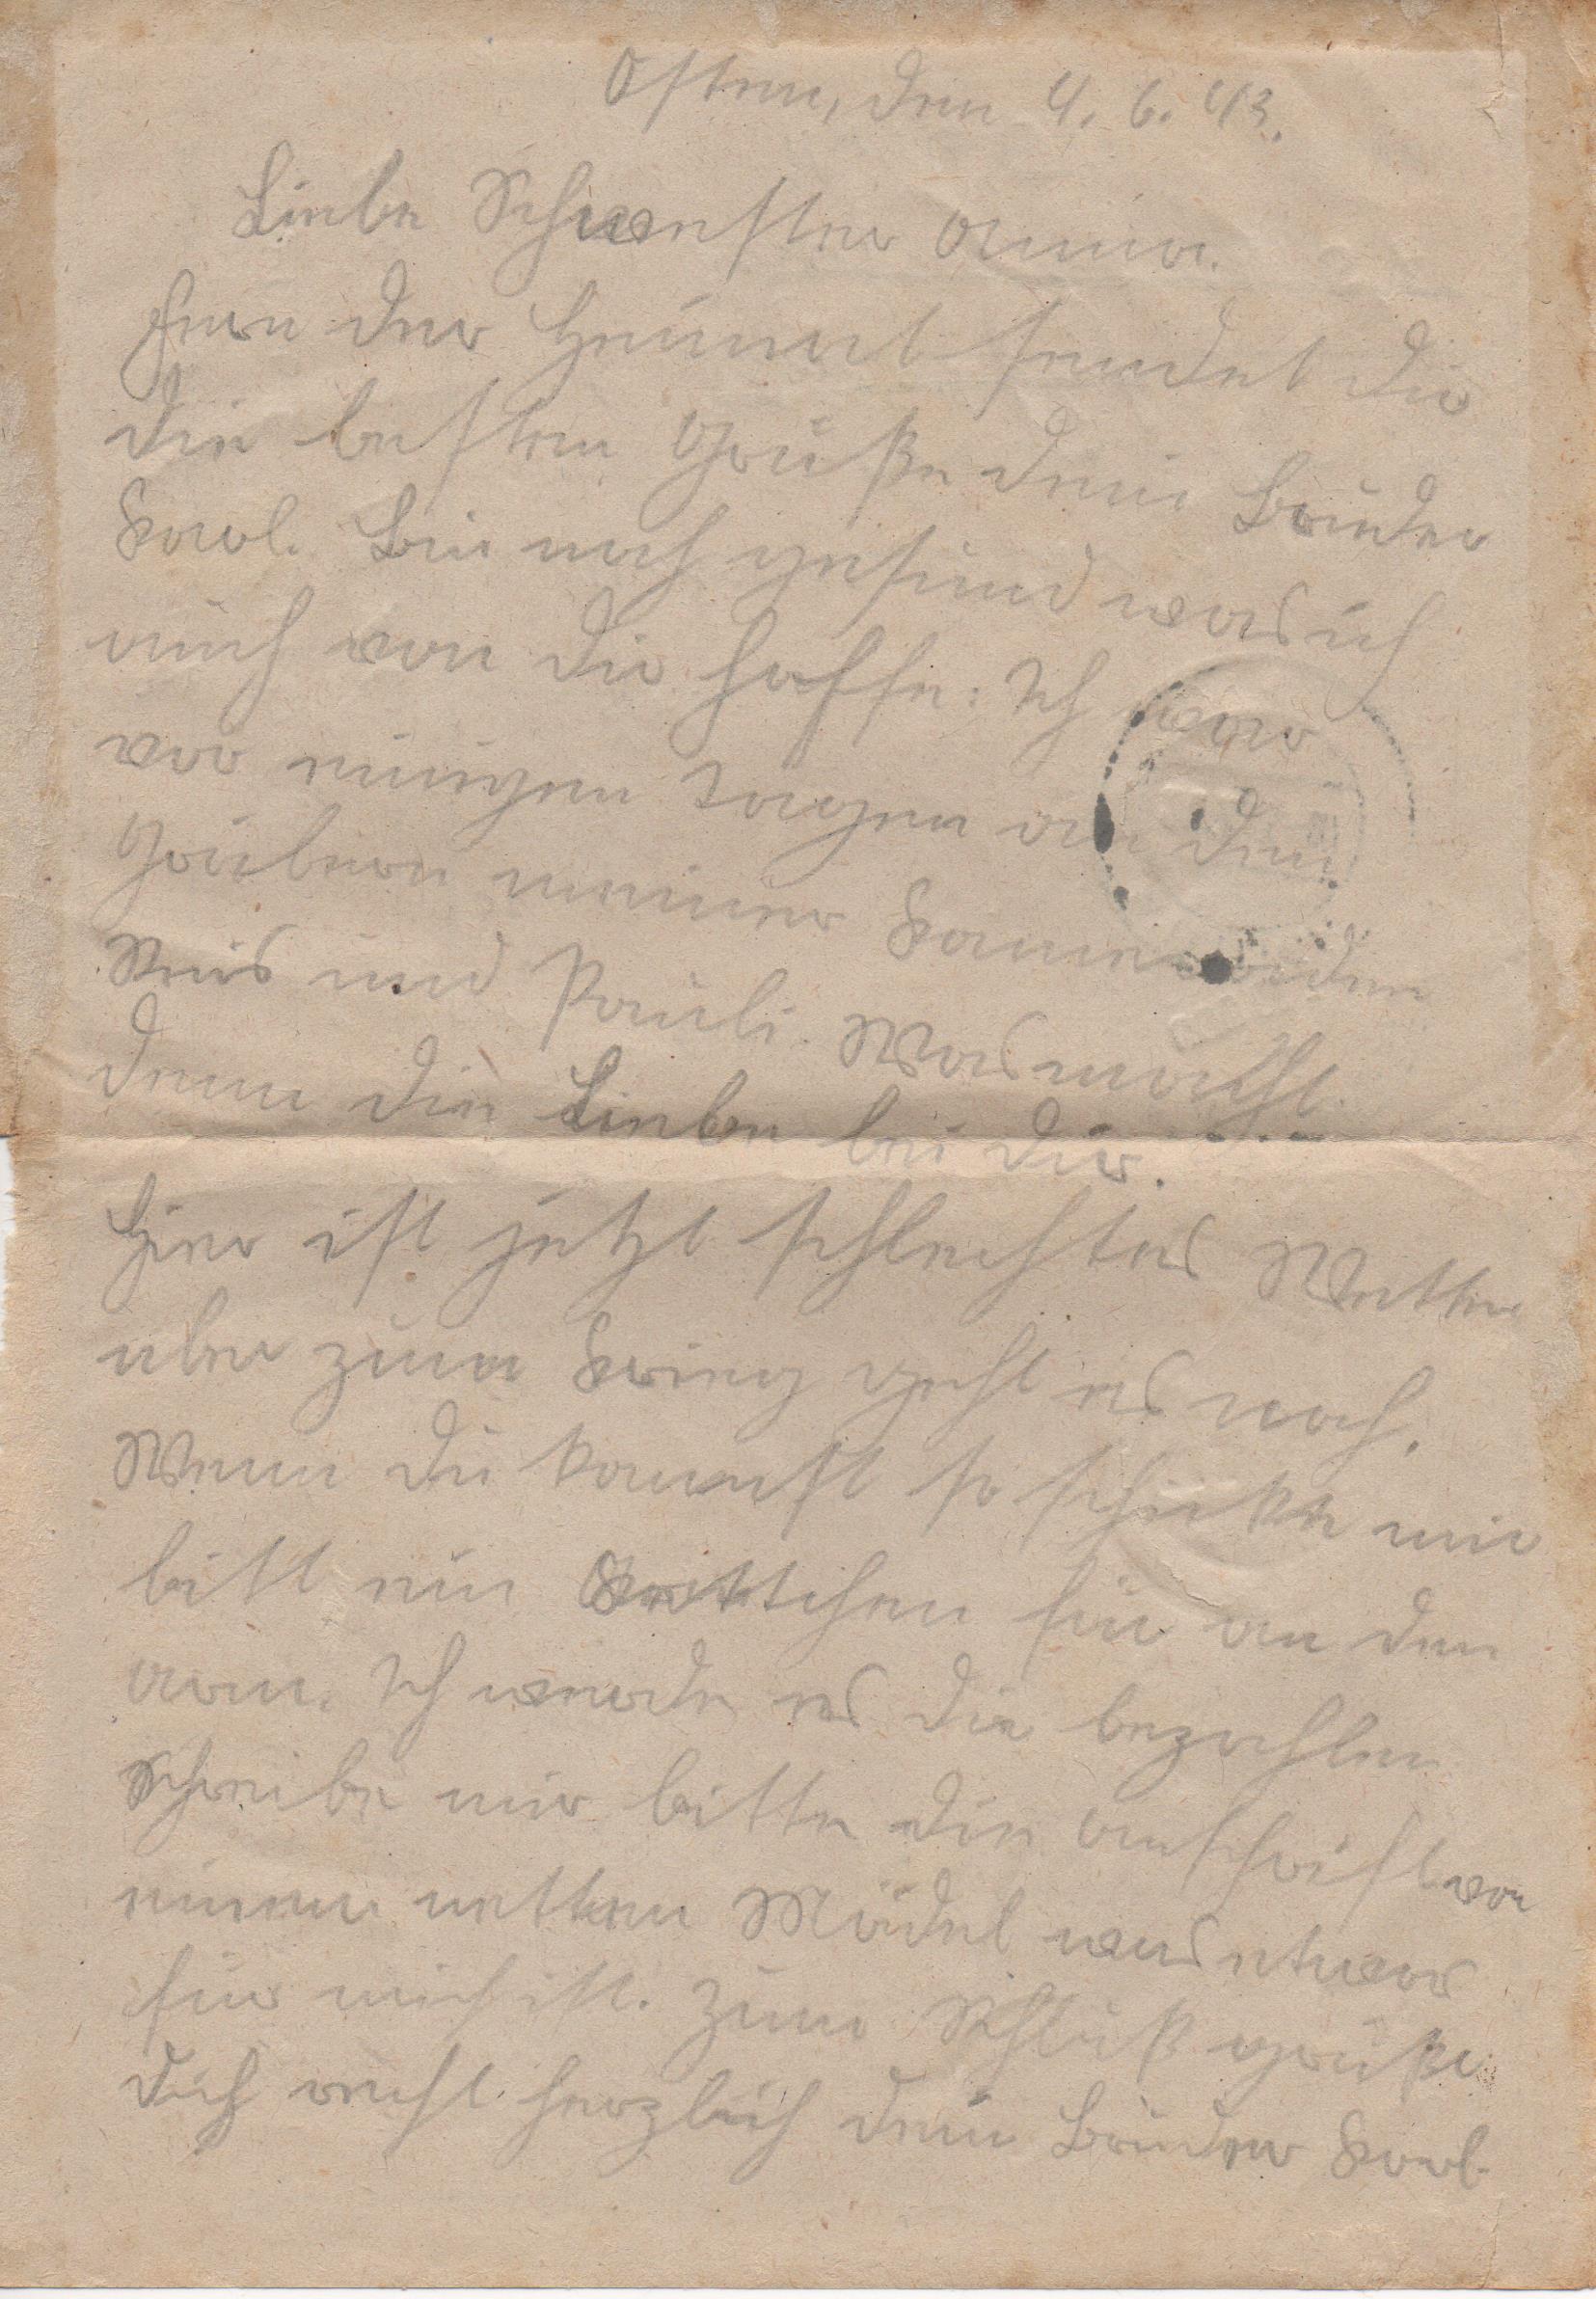 Osten, den 4. 6. 43.
Liebe Schwester Anna.
Fern der Heimat sendet dir
die besten Grüße dein Bruder
Karl. Bin noch gesund was ich
auch von dir hoffe. Ich war
vor einigen Tagen an den
Gräbern meiner Kameraden
und Pauli. Was macht
denn die Liebe bei dir.
Hier ist jetzt schlechtes Wetter
aber zum Krieg geht es noch.
Wenn du kannst so schicke mir
bitt ein Kettchen für an den
Arm. Ich werde es dir bezahlen
Schreibe mir bitte die Anschrift von
einem netten Mädel was etwas
für mich ist. Zum Schluß grüßt
dich recht herzlich dein Bruder Karl.